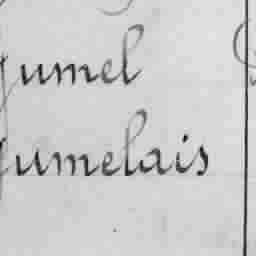 Jumel
Jumelais